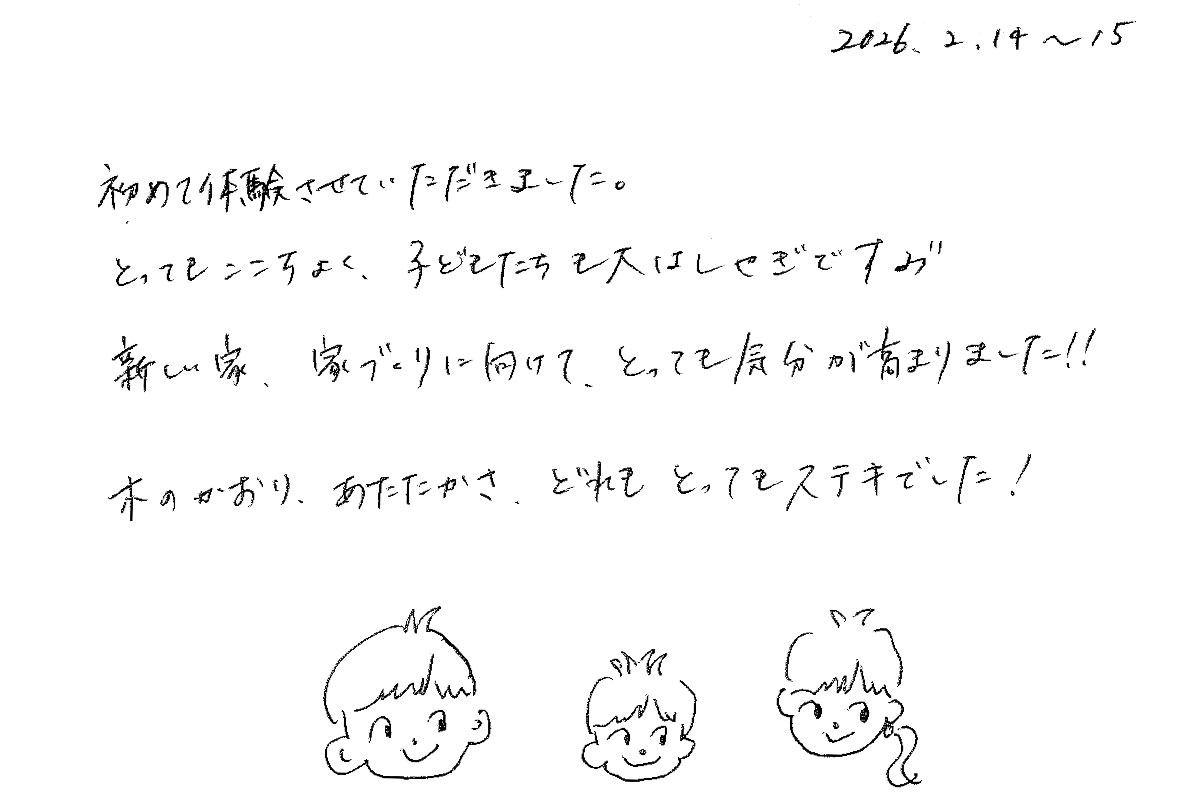 2026.2.14～15
初めて体験させていただきました。
とってもここちよく、子どもたちも大はしゃぎです
新しい家、家づくりに向けて、とっても気分が高まりました!!
木のかおり、あたたかさ、どれもとってもステキでした!